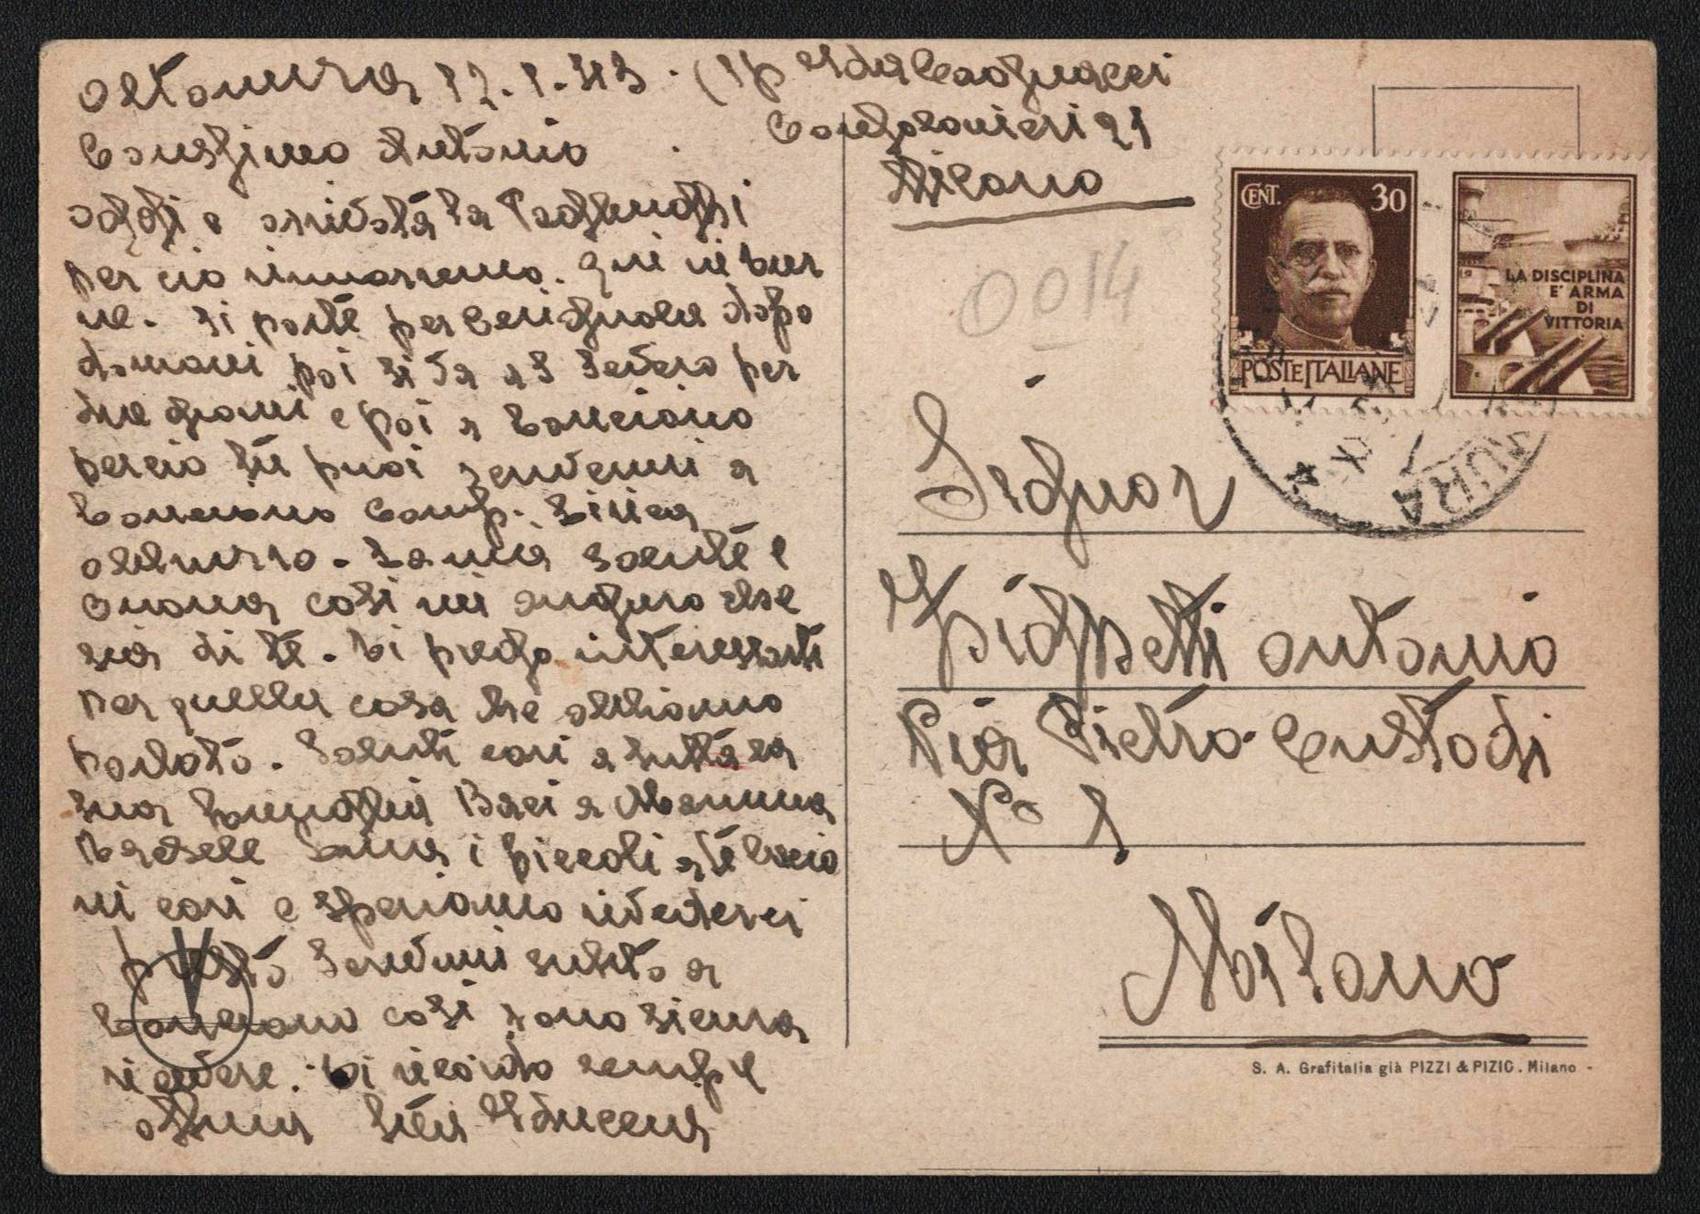 Altamura 12.1.43. (Sp
Campolonieri 21
Milano
Carissimo Antonio
oggi è arrivata la
per cio rimarremo. Qui
ne. Si parte per Cerignola dopo
domani poi si va a S Severo per
due giorni e poi a Lanciano
percio tu puoi scrivermi a
Lanciano Comp. Lirica
La mia salute è
buona cosi mi auguro che
sia di te. Ti prego interessarti
per quella cosa che abbiamo
parlato. Saluti cari a tutta la
tua famiglia Baci a Mamma
i piccoli a te bacio
ni cari e speriamo rivederci
presto scrivimi subito a
Lanciano cosi sono sicura
ricevere. Ti ricordo sempre
0014
CENT. 30
POSTE ITALIANE
LA DISCIPLINA
E' ARMA
DI
VITTORIA
Signor
Antonio
Via Pietro Custodi
No
Milano
S. A. Grafitalia già PIZZI & PIZIO. Milano -